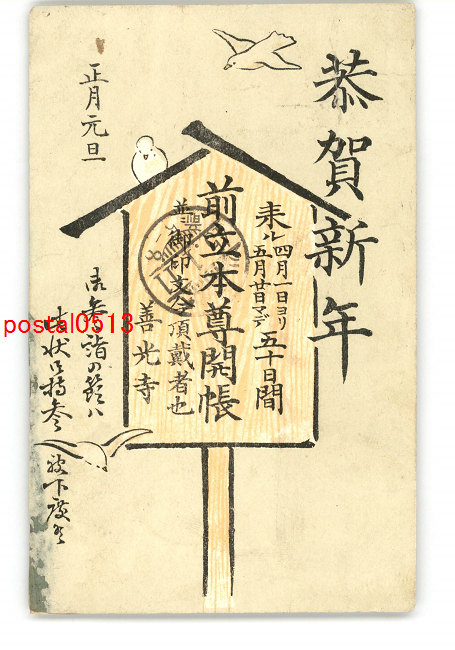 恭賀新年
来ル四月一日ヨリ
五月廿日マデ五十日間
前立本尊開帳
並御印文今頂戴者也
善光寺
正月元旦
御参詣の節ハ
此状御持参
被下度候
postal0513